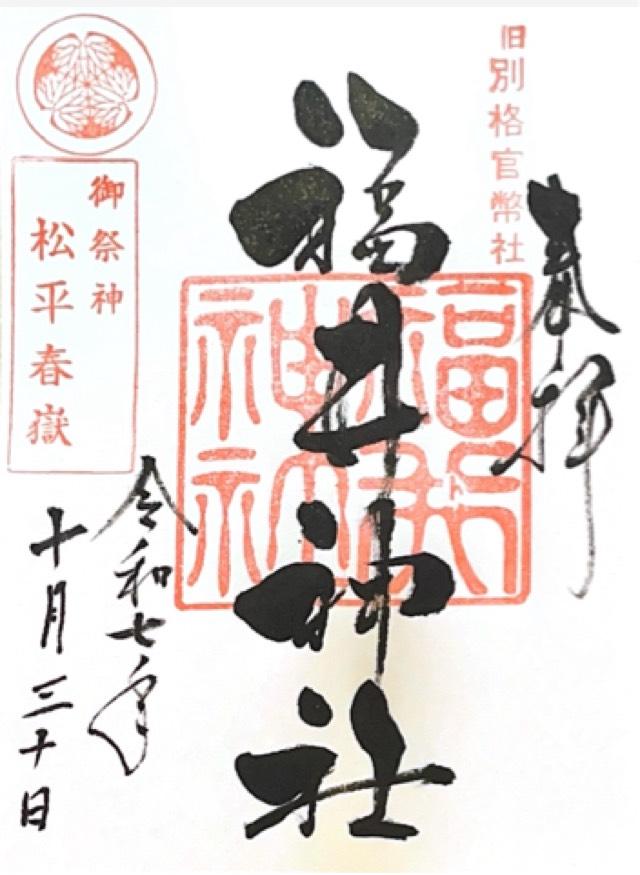 奉拝
旧別格官幣社
福井神社
御祭神
松平春嶽
令和七年
十月三十日